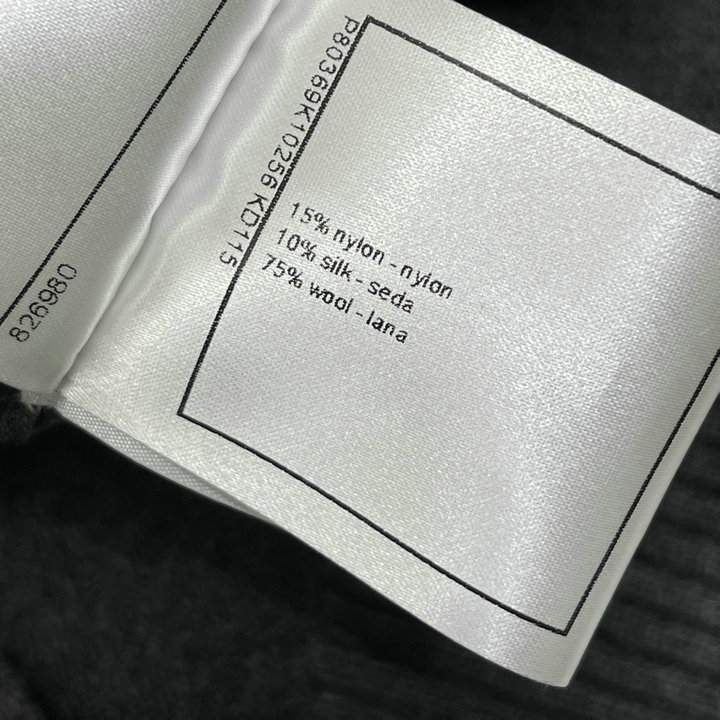 826980
P80369K10256 KD115
15% nylon - nylon
10% silk - seda
75% wool - lana